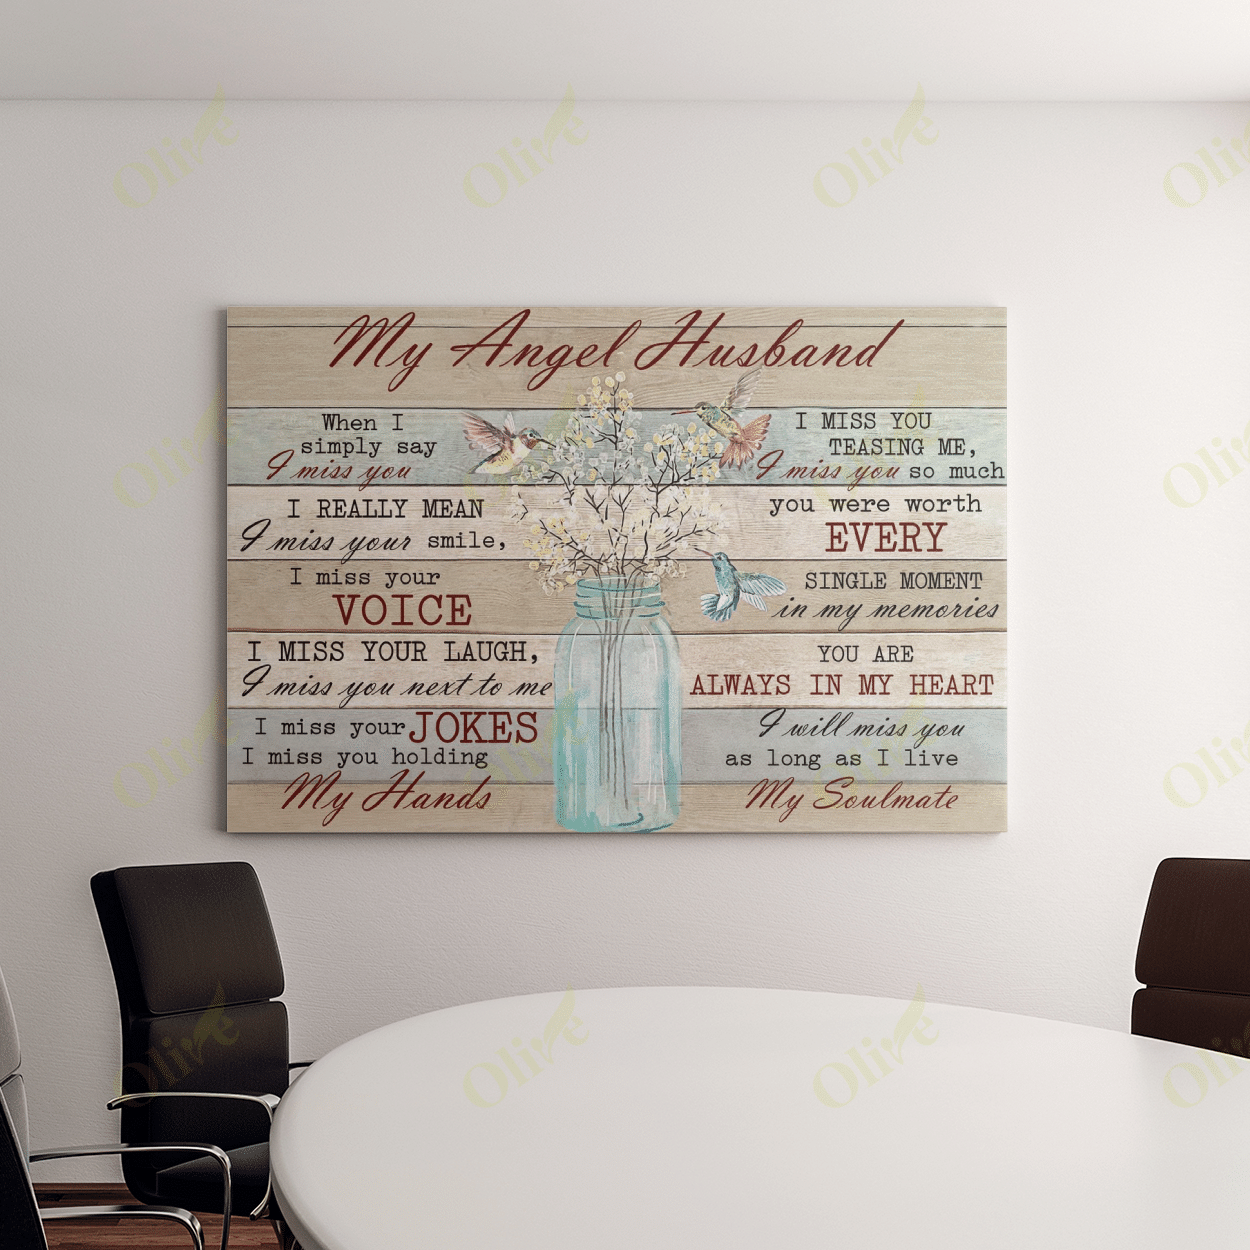 My Angel Husband
When I
simply say
I miss you
I REALLY MEAN
I miss your smile,
I miss your
VOICE
I MISS YOUR LAUGH,
I miss you next to me
I miss your JOKES
I miss you holding
My Hands
I MISS YOU
TEASING ME,
I miss you so much
you were worth
EVERY
SINGLE MOMENT
in my memories
YOU ARE
ALWAYS IN MY HEART
I will miss you
as long as I live
My Soulmate
Olive
Olive
Olive
Olive
Olive
Olive
Olive